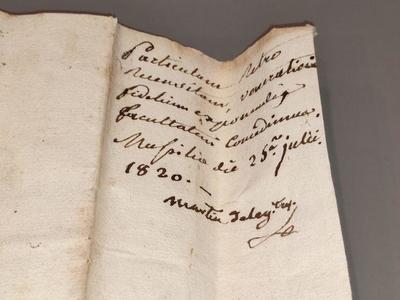 Particulam retro
recensitam, venerationi
fidelium exponendi
facultatem concedimus.
Massiliæ die 25ª julii.
1820. —
Martin